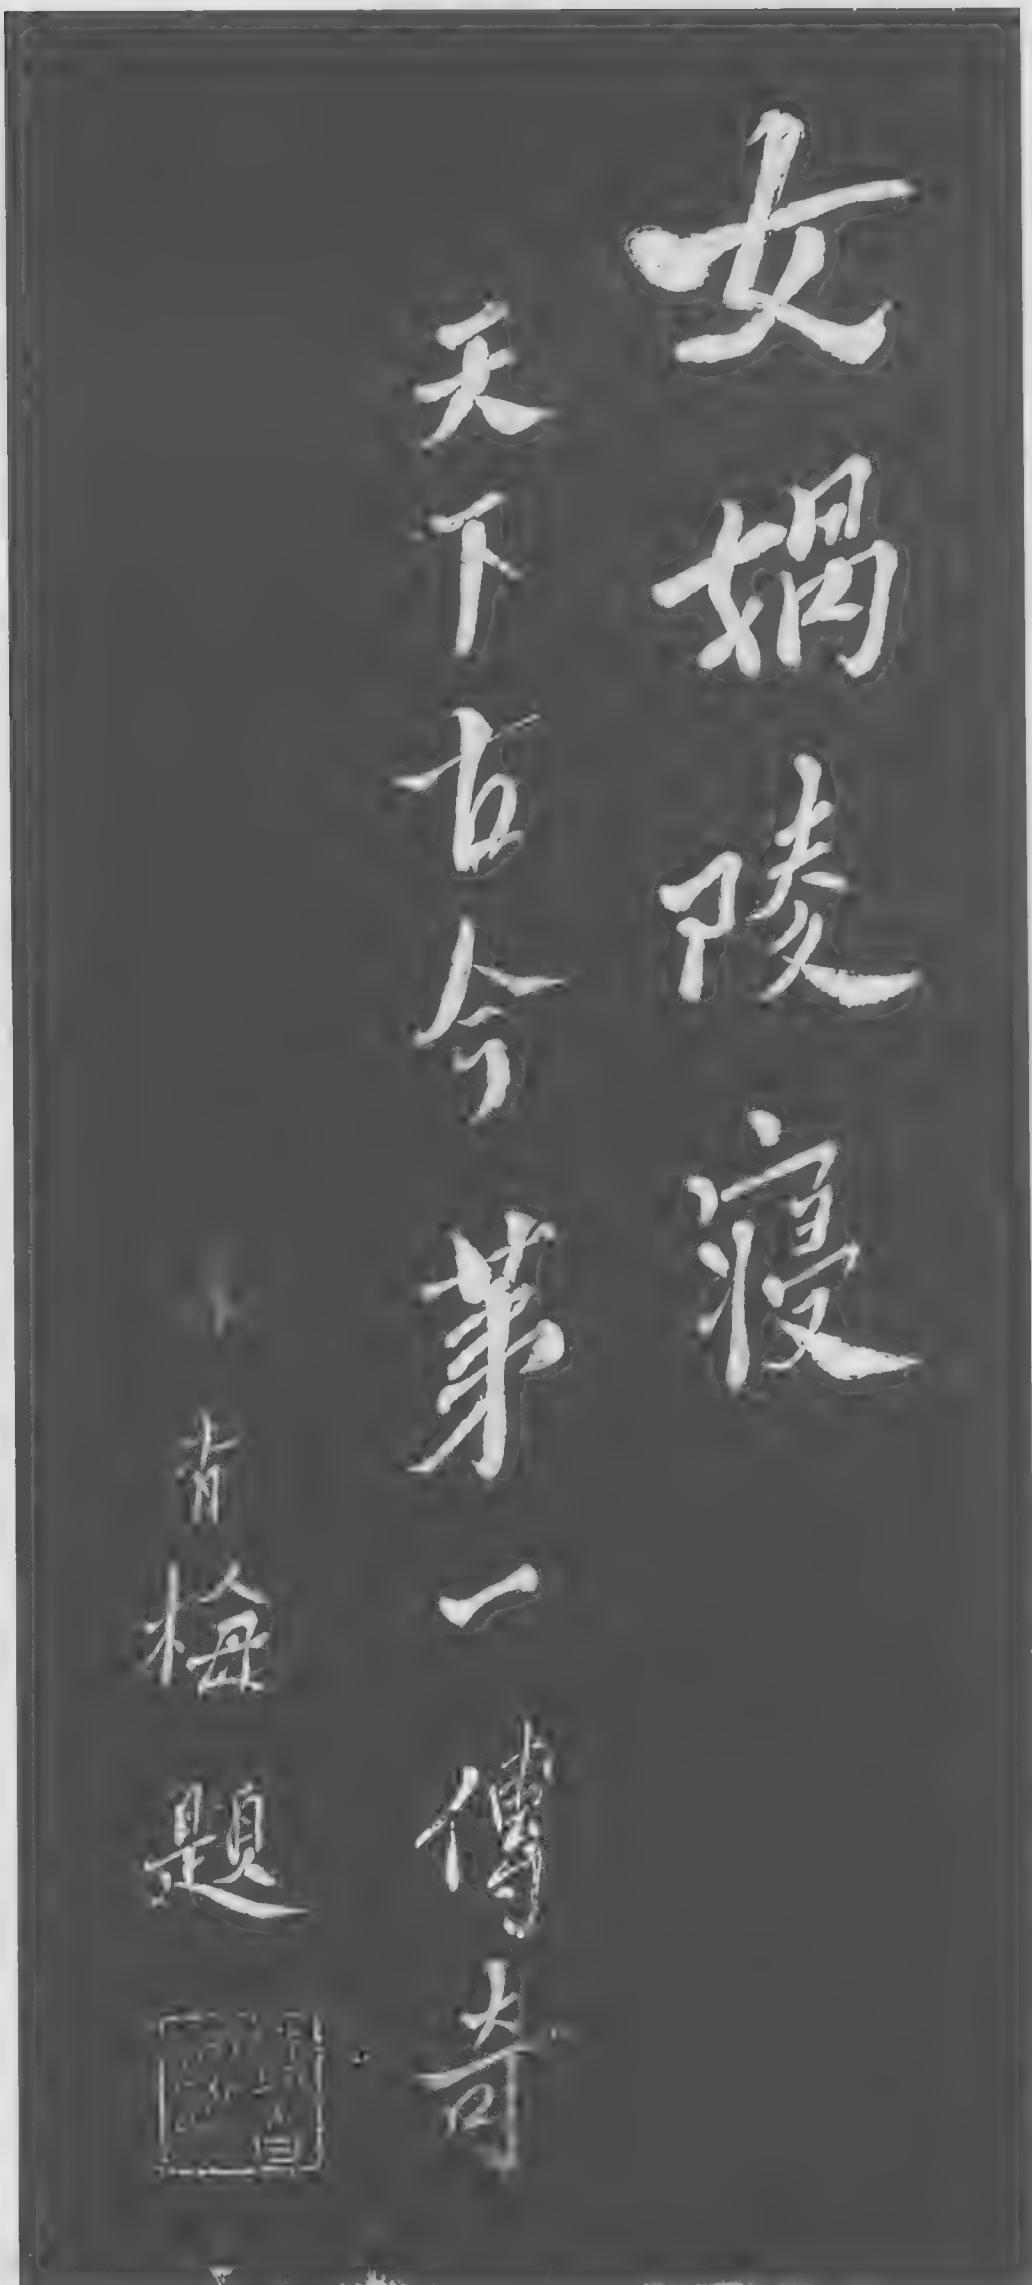 女媧陵寢
天下古今第一傳奇
青梅題